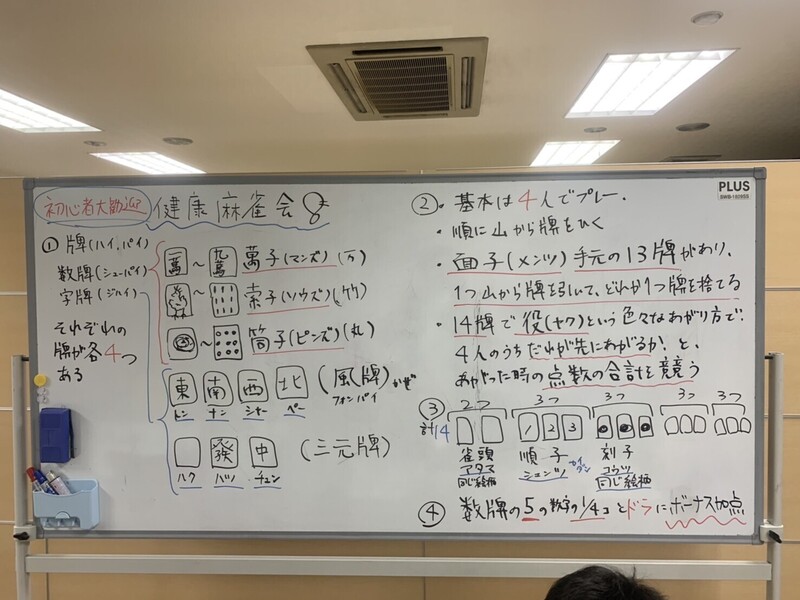 初心者大歓迎 健康麻雀会
① 牌(ハイ、パイ)
数牌(シューパイ)
字牌(ジハイ)
それぞれの
牌が各4つ
ある
一萬 ~ 九萬 萬子(マンズ)(万)
~ 索子(ソウズ)(竹)
~ 筒子(ピンズ)(丸)
東 南 西 北 (風牌)かぜ
トン ナン シャー ペー フォンパイ
發 中 (三元牌)
ハク ハツ チュン
② ・基本は4人でプレー.
・順に山から牌をひく
・面子(メンツ) 手元の13牌があり、
1つ山から牌を引いて、どれか1つ牌を捨てる
・14牌で役(ヤク)という色々なあがり方で.
4人のうちだれが先にあがるか! と、
あがった時の点数の合計を競う
③ 2つ 3つ 3つ 3つ 3つ
計14 1 2 3
雀頭 順子 刻子
アタマ シュンツ カイダン コウツ
同じ絵柄 同じ絵柄
④ 数牌の5の数字の1/4コとドラにボーナス加点
PLUS